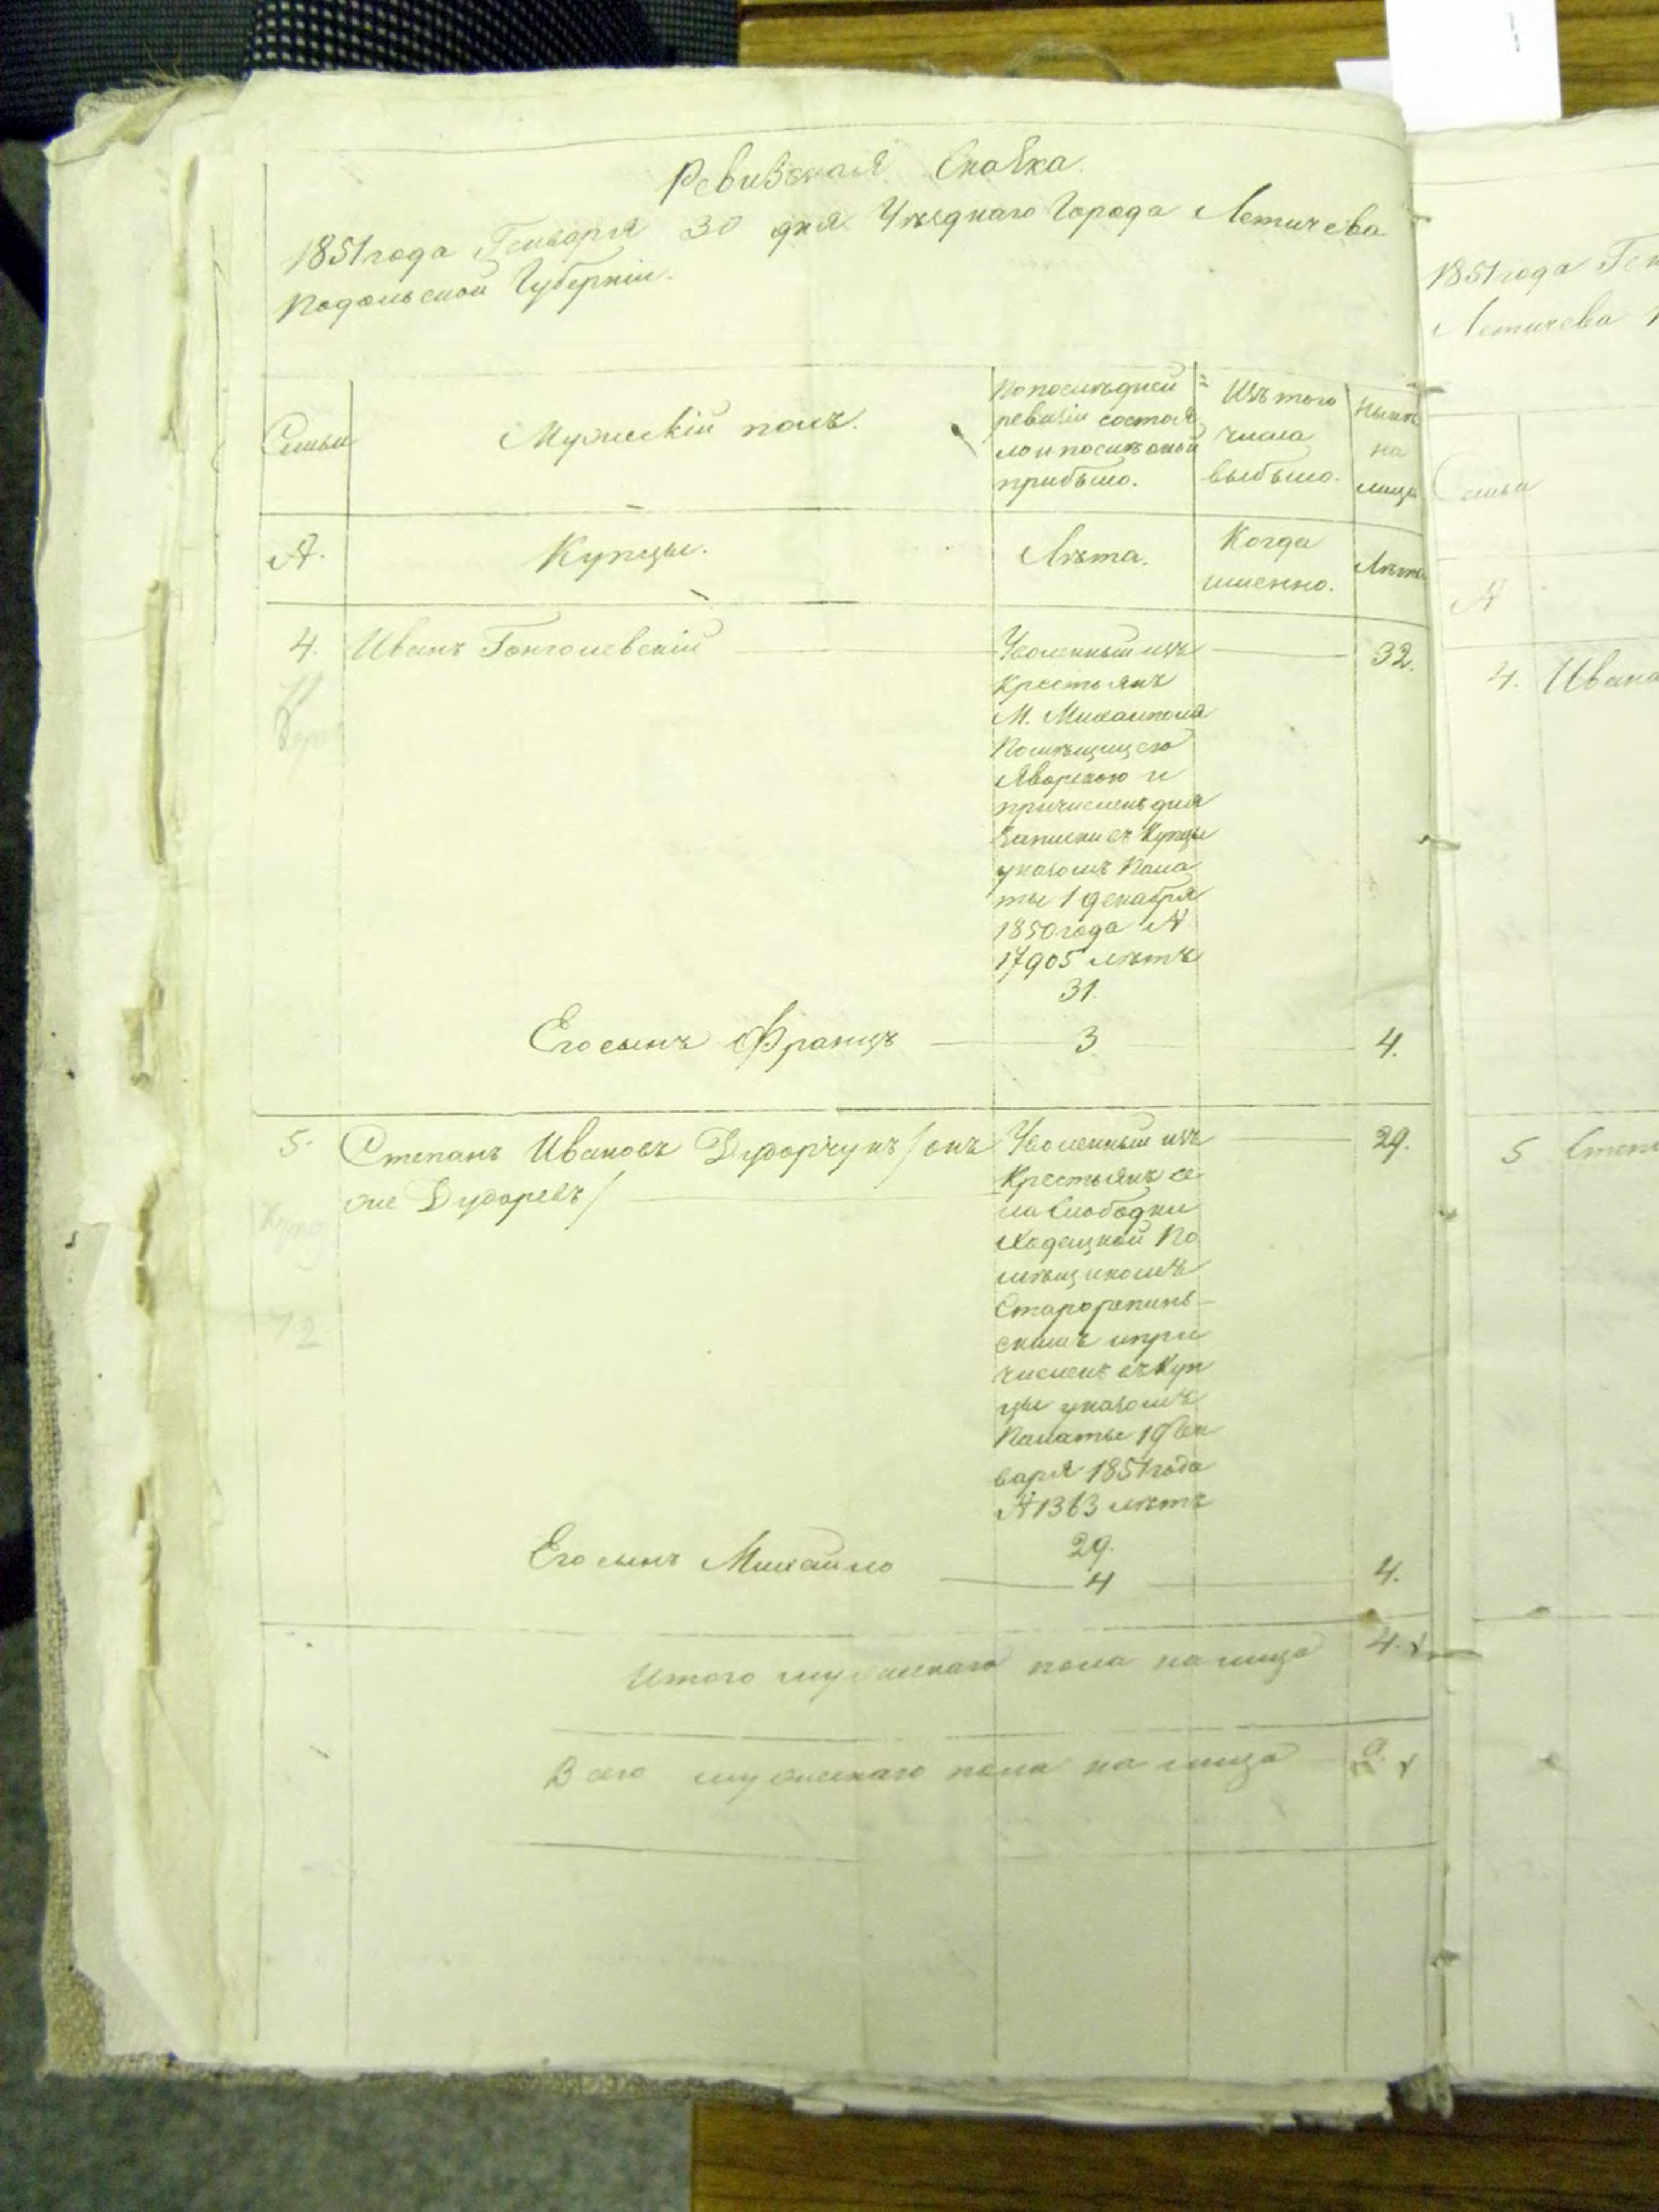 Ревизская Сказка
1851 года Генваря 30 дня Уезднаго Города Летичева
Подольской Губерніи.
Семьи
Мужескій полъ.
По послѣдней
ревизіи состоя
ло и послѣ оной
прибыло.
Изъ того
числа
выбыло.
Нынѣ
на
лицо
№.
Купцы.
Лѣта.
Когда
именно.
Лѣта
4. Иванъ Гонголевскій
Уволенный изъ
Крестьянъ
М. Михалполя
Яворскою и
причисленъ для
Записки въ Купцы
указомъ Пала
ты 1 декабря
1850 года №
17905 лѣтъ
31.
32.
Его сынъ Францъ 3 4.
5. Степанъ Ивановъ Дударчукъ / онъ
же Дударевъ /
Уволенный изъ
Крестьянъ се
ла Слободки
По
мѣщикомъ
Старорипинь
скимъ и при
численъ въ Куп
цы указомъ
Палаты 19 Ген
варя 1851 года
№ 1363 лѣтъ
29.
29.
Его сынъ Михайло 4 4.
Итого мужескаго пола на лицо 4.
Всего мужескаго пола на лицо
1851 года Ген
Летичева
Семьи
№
4. Ивана
5 Степ